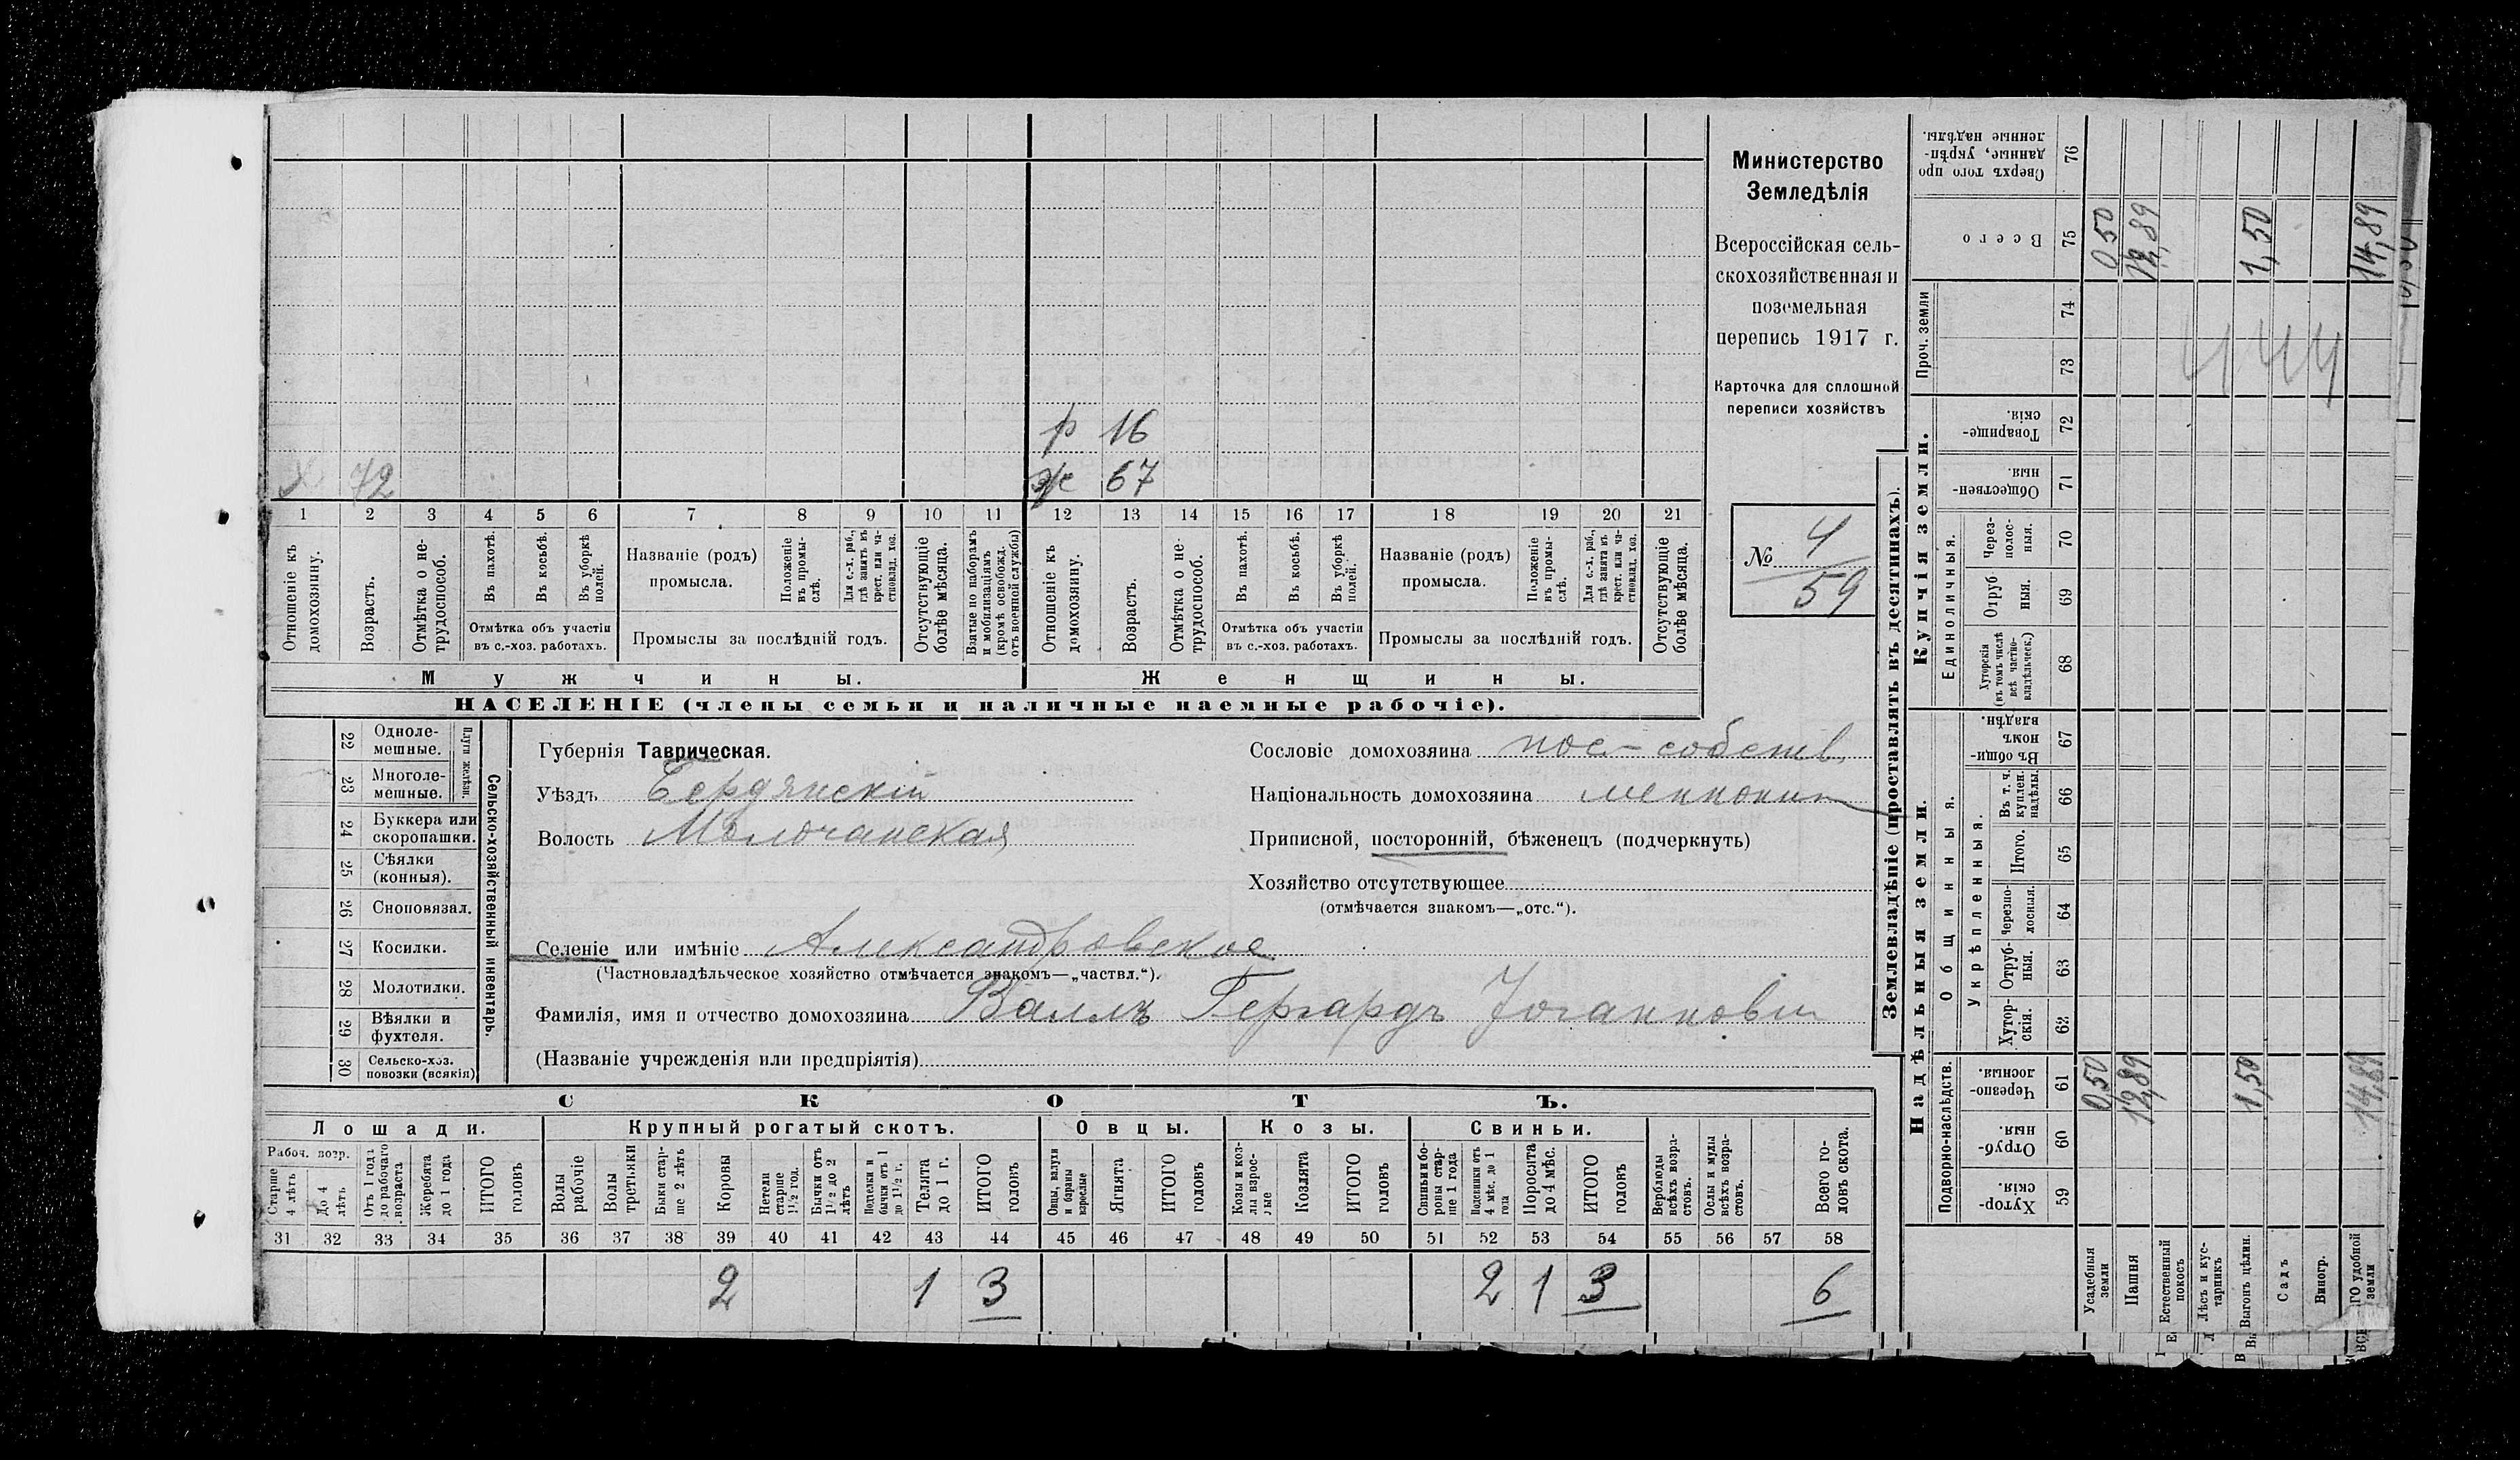 р 16
х 72
ж 67
1 2 3 4 5 6 7 8 9 10 11 12 13 14 15 16 17 18 19 20 21
Отношеніе къ домохозяину.
Возрастъ.
Отмѣтка о не-
трудоспособ.
Въ пахотѣ.
Въ косьбѣ.
Въ уборкѣ
полей.
Отмѣтка объ участіи
въ с.-хоз. работахъ.
Названіе (родъ)
промысла.
Положеніе
въ промы-
слѣ.
Для с.-х. раб.,
гдѣ занятъ въ
крест. или ча-
стновлад. хоз.
Промыслы за послѣдній годъ.
Отсутствующіе
болѣе мѣсяца.
Взятые по наборамъ
и мобилизаціямъ
(кромѣ освобожд.
отъ военной службы)
Отношеніе къ
домохозяину.
Возрастъ.
Отмѣтка о не-
трудоспособ.
Въ пахотѣ.
Въ косьбѣ.
Въ уборкѣ
полей.
Отмѣтка объ участіи
въ с.-хоз. работахъ.
Названіе (родъ)
промысла.
Положеніе
въ промы-
слѣ.
Для с.-х. раб.,
гдѣ занята въ
крест. или ча-
стновлад. хоз.
Промыслы за послѣдній годъ.
Отсутствующіе
болѣе мѣсяца.
Мужчины.
Женщины.
НАСЕЛЕНІЕ (члены семьи и наличные наемные рабочіе).
Министерство
Земледѣлія
Всероссійская сель-
скохозяйственная и
поземельная
перепись 1917 г.
Карточка для сплошной
переписи хозяйствъ
№ 4
59
22 Одноле-
мешные.
23 Многоле-
мешные.
Плуги желѣзн.
24 Буккера или
скоропашки.
25 Сѣялки
(конныя).
26 Сноповязал.
27 Косилки.
28 Молотилки.
29 Вѣялки и
фухтеля.
30 Сельско-хоз.
повозки (всякія)
Сельско-хозяйственный инвентарь.
Губернія Таврическая.
Уѣздъ Бердянскій
Волость Молочанская
Сословіе домохозяина пос-собств.
Національность домохозяина меннонит
Приписной, посторонній, бѣженецъ (подчеркнуть)
Хозяйство отсутствующее
(отмѣчается знакомъ—„отс.“).
Селеніе или имѣніе Александровское
(Частновладѣльческое хозяйство отмѣчается знакомъ—„частвл.“).
Фамилія, имя и отчество домохозяина Валлъ Гергардъ Іоганнович
(Названіе учрежденія или предпріятія)
СКОТЪ.
Лошади.
Крупный рогатый скотъ.
Овцы.
Козы.
Свиньи.
Рабоч. возр.
Старше
4 лѣтъ
До 4
лѣтъ
Отъ 1 года
до рабочаго
возраста
Жеребята
до 1 года
ИТОГО
головъ
Волы
рабочіе
Волы
третьяки
Быки стар-
ше 2 лѣтъ
Коровы
Нетели
старше
1½ год.
Бычки отъ
1½ до 2
лѣтъ
Подтелки и
бычки отъ 1
до 1½ г.
Телята
до 1 г.
ИТОГО
головъ
Овцы, валухи
и бараны
взрослые
Ягнята
ИТОГО
головъ
Козы и коз-
лы взрос-
лые
Козлята
ИТОГО
головъ
Свиньи и бо-
ровы стар-
ше 1 года
Подсвинки отъ
4 мѣс. до 1
года
Поросята
до 4 мѣс.
ИТОГО
головъ
Верблюды
всѣхъ возра-
стовъ.
Ослы и мулы
всѣхъ возра-
стовъ.
Всего го-
ловъ скота.
31 32 33 34 35 36 37 38 39 40 41 42 43 44 45 46 47 48 49 50 51 52 53 54 55 56 57 58
2 1 3 2 1 3 6
Землевладѣніе (проставлять въ десятинахъ).
Сверхъ того про
данные, укрѣп-
ленные надѣлы.
76
Всего
75
0 50
12,89
1,50
14,89
Проч. земли
74
73
444
Купчія земли.
Товарище-
скія.
72
Обществен-
ныя.
71
Единоличныя.
Через-
полос-
ныя.
70
Отруб
ныя.
69
Хуторскія
(въ томъ числѣ
всѣ частно-
владѣльческ.)
68
Надѣльныя земли.
Общинныя.
Въ общи-
номъ
владѣн.
67
Укрѣпленныя.
Въ т. ч.
куплен.
надѣлы.
66
Итого.
65
Черезпо-
лосныя.
64
Отруб-
ныя.
63
Хутор-
скія.
62
Подворно-наслѣдств.
Черезпо-
лосныя.
61
0,50
12,89
1,50
14,89
Отруб-
ныя.
60
Хутор-
скія.
59
Усадебныя
земли
Пашня
Естественный
покосъ
Лѣсъ и кус-
тарникъ
Выгонъ цѣлин.
Садъ
Виногр.
ГО удобной
земли